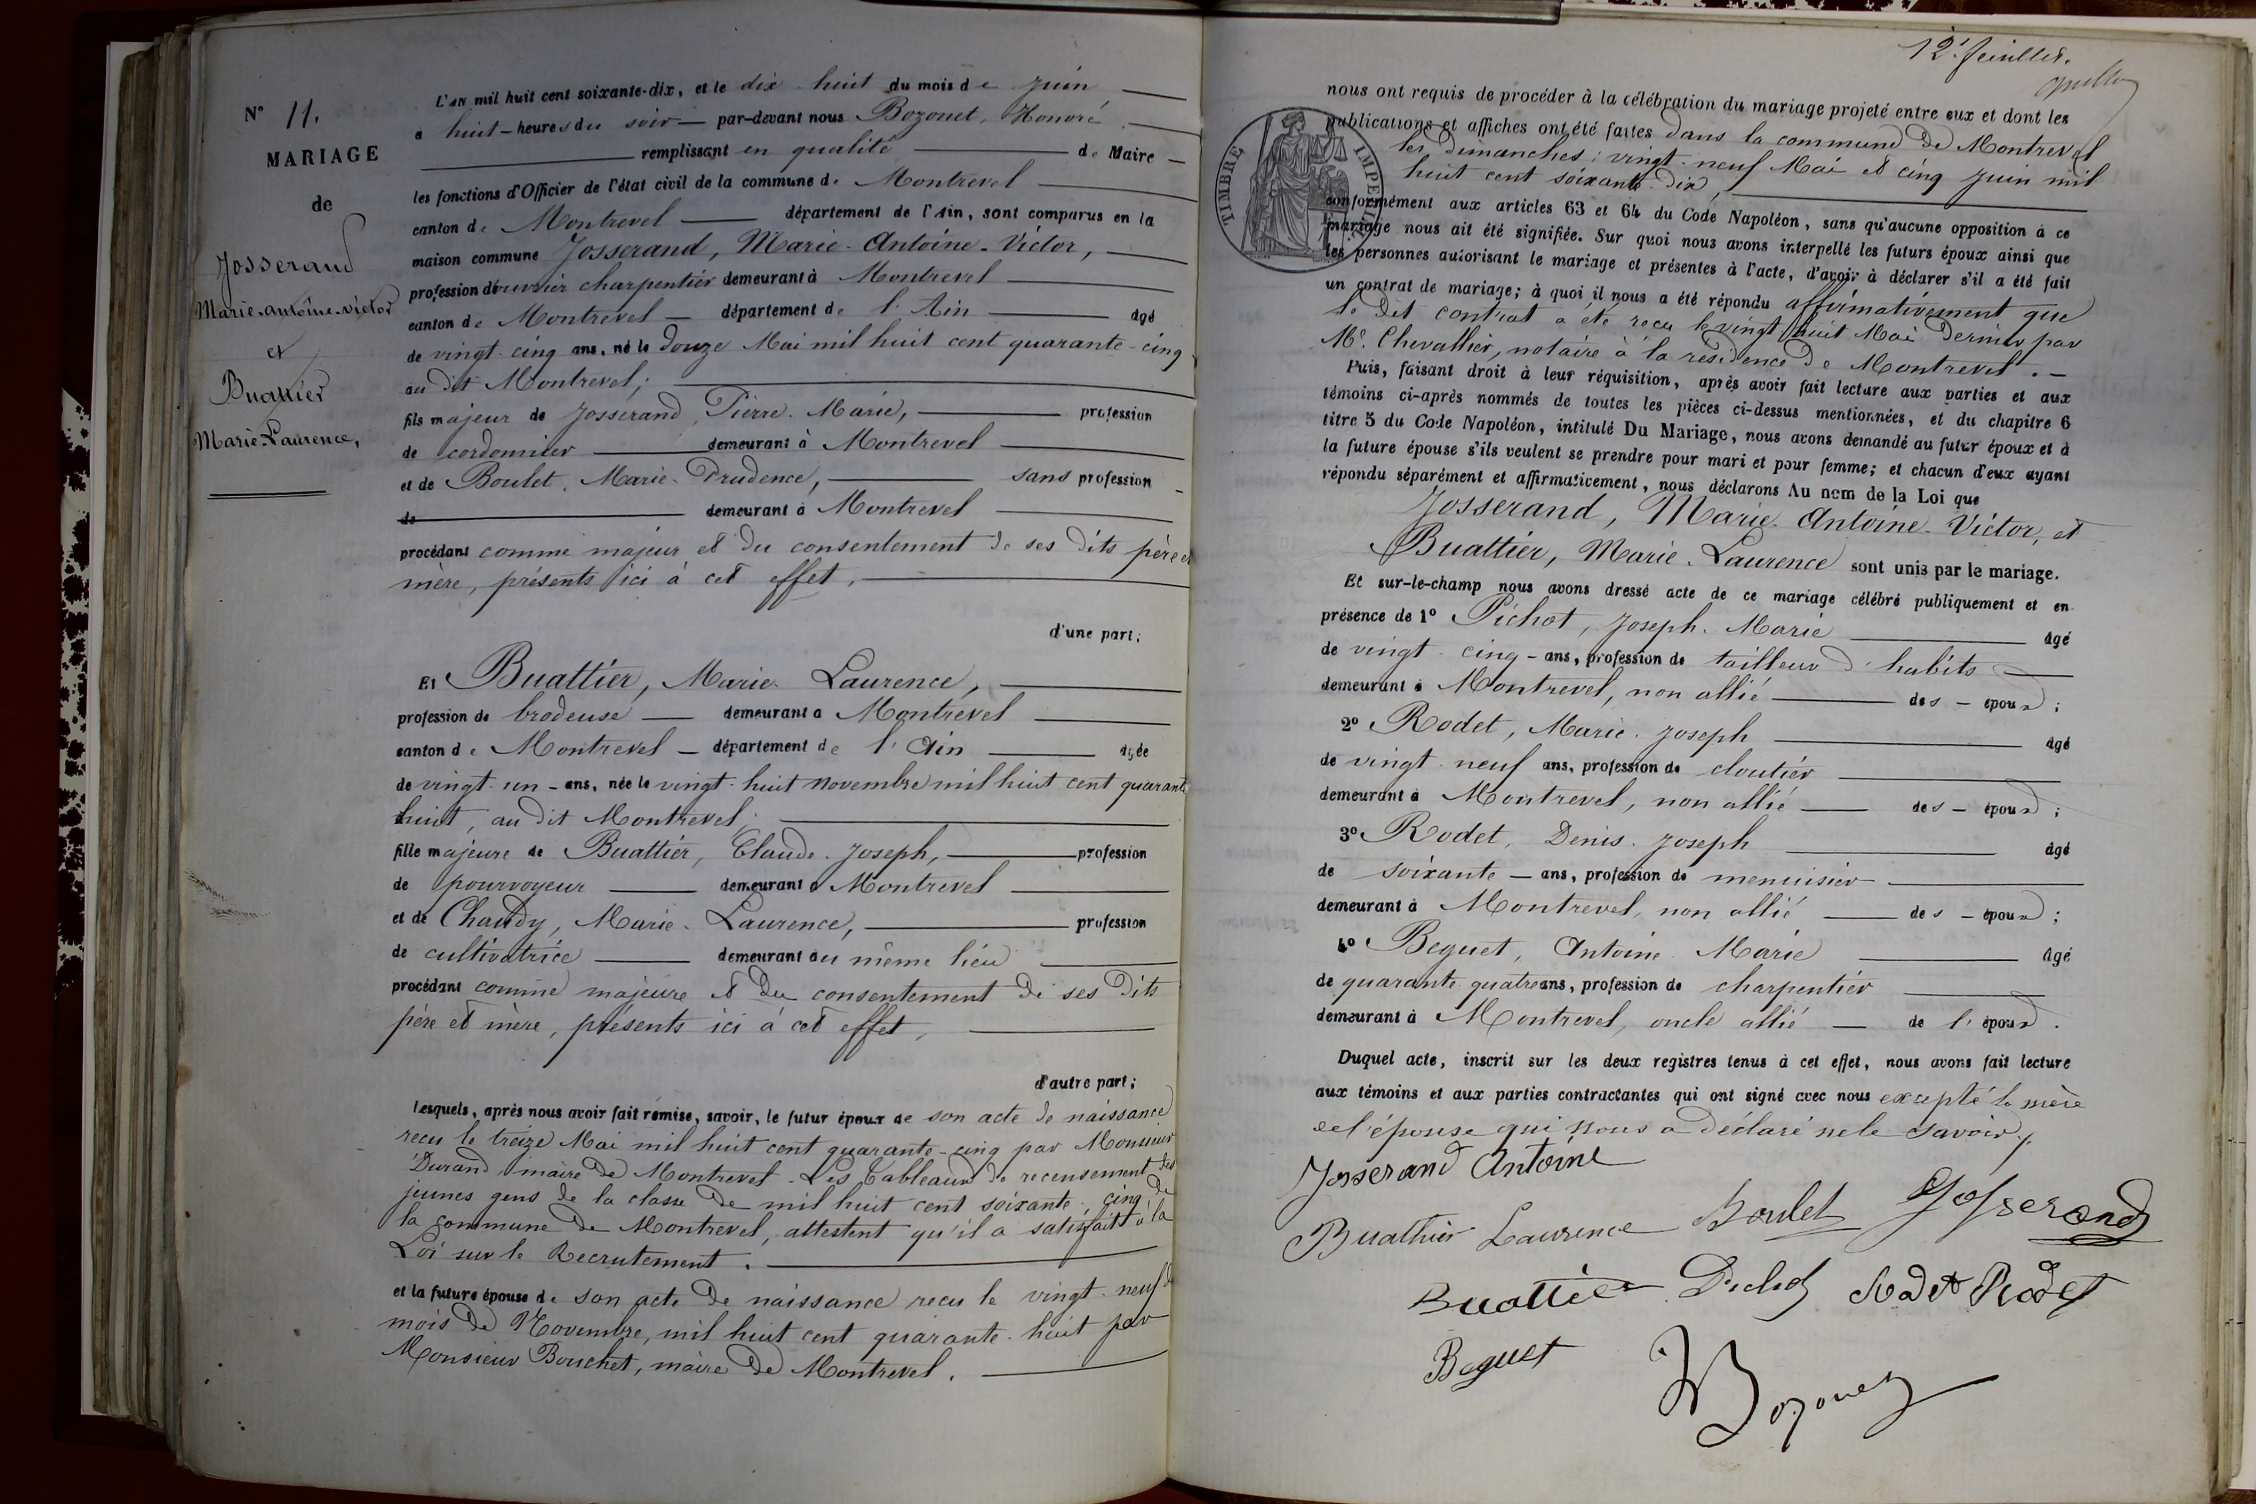 N° 11.
MARIAGE
de
Josserand
Marie-antoine-victor
et
Buattier
Marie-Laurence,
L'an mil huit cent soixante-dix, et le dix huit du mois de juin
à huit heures du soir par-devant nous Bozonet, Honoré
remplissant en qualité de Maire
les fonctions d'Officier de l'état civil de la commune de Montrevel
canton de Montrevel département de l'Ain, sont comparus en la
maison commune Josserand, Marie-Antoine-Victor,
profession d'ouvrier charpentier demeurant à Montrevel
canton de Montrevel département de l'Ain âgé
de vingt-cinq ans, né le douze Mai mil huit cent quarante-cinq
au dit Montrevel;
fils majeur de Josserand, Pierre-Marie, profession
de cordonnier demeurant à Montrevel
et de Boulet, Marie-Prudence, sans profession
de demeurant à Montrevel
procédant comme majeur et du consentement de ses dits père et
mère, présents ici à cet effet,
d'une part;
Et Buattier, Marie-Laurence,
profession de brodeuse demeurant à Montrevel
canton de Montrevel département de l'Ain âgée
de vingt-un ans, née le vingt-huit novembre mil huit cent quarante
huit, au dit Montrevel;
fille majeure de Buattier, Claude-Joseph, profession
de pourvoyeur demeurant à Montrevel
et de Chaudy, Marie-Laurence, profession
de cultivatrice demeurant au même lieu
procédant comme majeure et du consentement de ses dits
père et mère, présents ici à cet effet,
d'autre part;
Lesquels, après nous avoir fait remise, savoir, le futur époux de son acte de naissance
reçu le treize Mai mil huit cent quarante-cinq par Monsieur
Durand maire de Montrevel. Les Tableaux de recensement des
jeunes gens de la classe de mil huit cent soixante-cinq de
la commune de Montrevel, attestent qu'il a satisfait à la
Loi sur le Recrutement.
et la future épouse de son acte de naissance reçu le vingt-neuf du
mois de Novembre, mil huit cent quarante-huit par
Monsieur Bouchet, maire de Montrevel.
12e feuillet.
TIMBRE IMPERIAL
nous ont requis de procéder à la célébration du mariage projeté entre eux et dont les
publications et affiches ont été faites dans la commune de Montrevel
les dimanches: vingt-neuf Mai et cinq juin mil
huit cent soixante-dix,
conformément aux articles 63 et 64 du Code Napoléon, sans qu'aucune opposition à ce
mariage nous ait été signifiée. Sur quoi nous avons interpellé les futurs époux ainsi que
les personnes autorisant le mariage et présentes à l'acte, d'avoir à déclarer s'il a été fait
un contrat de mariage; à quoi il nous a été répondu affirmativement que
le dit contrat a été reçu le vingt-huit Mai dernier par
Me. Chevallier, notaire à la résidence de Montrevel.
Puis, faisant droit à leur réquisition, après avoir fait lecture aux parties et aux
témoins ci-après nommés de toutes les pièces ci-dessus mentionnées, et du chapitre 6
titre 5 du Code Napoléon, intitulé Du Mariage, nous avons demandé au futur époux et à
la future épouse s'ils veulent se prendre pour mari et pour femme; et chacun d'eux ayant
répondu séparément et affirmativement, nous déclarons Au nom de la Loi que
Josserand, Marie-Antoine-Victor, et
Buattier, Marie-Laurence sont unis par le mariage.
Et sur-le-champ nous avons dressé acte de ce mariage célébré publiquement et en
présence de 1° Pichot, Joseph-Marie âgé
de vingt-cinq ans, profession de tailleur d'habits
demeurant à Montrevel, non allié des époux;
2° Rodet, Marie-Joseph âgé
de vingt-neuf ans, profession de cloutier
demeurant à Montrevel, non allié des époux;
3° Rodet, Denis-Joseph âgé
de soixante ans, profession de menuisier
demeurant à Montrevel, non allié des époux;
4° Beguet, Antoine-Marie âgé
de quarante-quatre ans, profession de charpentier
demeurant à Montrevel, oncle allié de l'époux.
Duquel acte, inscrit sur les deux registres tenus à cet effet, nous avons fait lecture
aux témoins et aux parties contractantes qui ont signé avec nous excepté la mère
de l'épouse qui nous a déclaré ne le savoir.
Josserand Antoine
Buathier Laurence Boulet Josserand
Buattier Pichot Rodet Rodet
Beguet
Bozonet